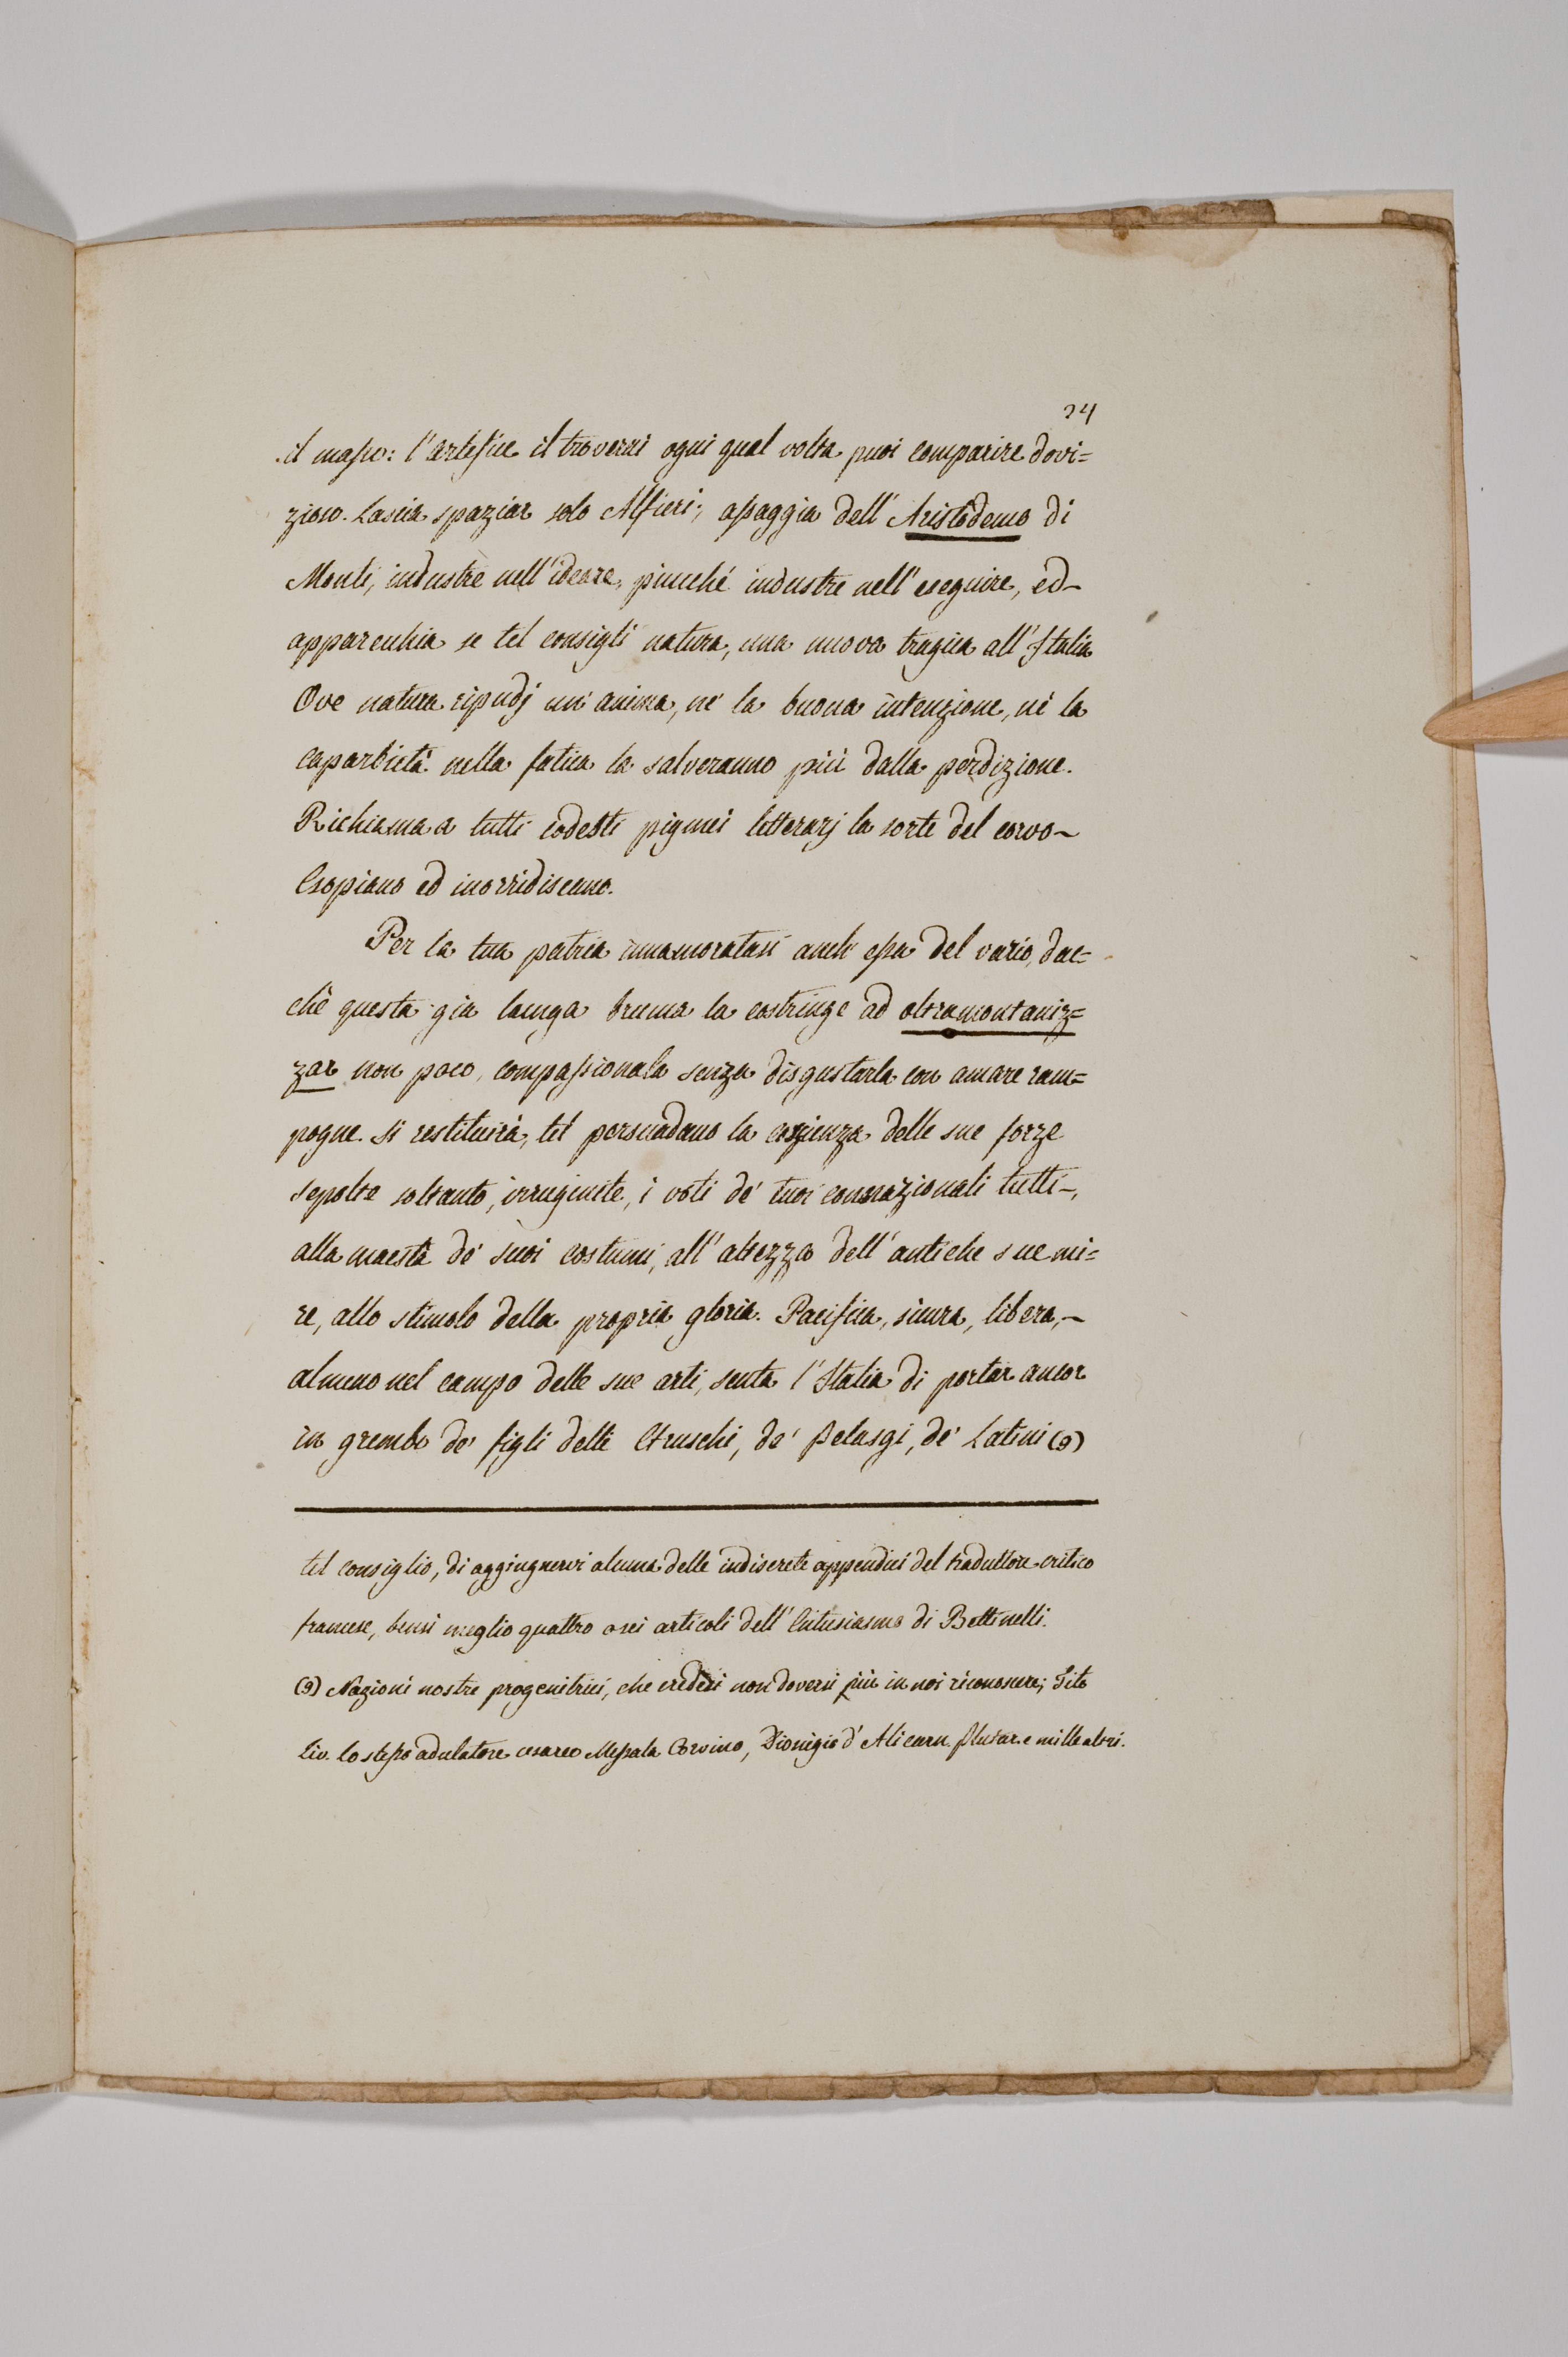 24
il masso: l'artefice il troverai ogni qual volta puoi comparire dovi=
zioso. Lascia spaziar solo Alfieri; assaggia dell'Aristodemo di
Monti, industre nell'ideare, piucché industre nell'eseguire, ed
apparecchia se tel consigli natura, una nuova tragica all'Italia
Ove natura ripudj un'anima, né la buona intenzione, né la
caparbietà nella fatica la salveranno più dalla perdizione.
Richiama a tutti codesti pigmei letterarj la sorte del corvo
Esopiano ed inorridiscano.
Per la tua patria innamoratasi anch'essa del vario, dac=
chè questa già lunga bruma la costringe ad oltramontaniz=
zar non poco, compassionala senza disgustarla con amare ram=
pogne. Si restituirà, tel persuadano la coscienza delle sue forze
sepolte soltanto, irruginite, i voti de' tuoi connazionali tutti,
alla maestà de' suoi costumi, all'altezza dell'antiche sue mi=
re, allo stimolo della propria gloria. Pacifica, sicura, libera,
almeno nel campo delle sue arti, senta l'Italia di portar ancor
in grembo de' figli delli Etruschi, de' Pelasgi, de' Latini (9)
tel consiglio, di aggiugnervi alcuna delle indiscrete appendici del traduttore critico
francese, bensì meglio quattro o sei articoli dell'Entusiasmo di Bettinelli.
(9) Nazioni nostre progenitrici, che credesi non doversi più in noi riconoscere; Tito
Liv. lo stesso adulatore cesareo Messala Corvino, Dionigio d'Alicarn. Plutar. e mille altri.